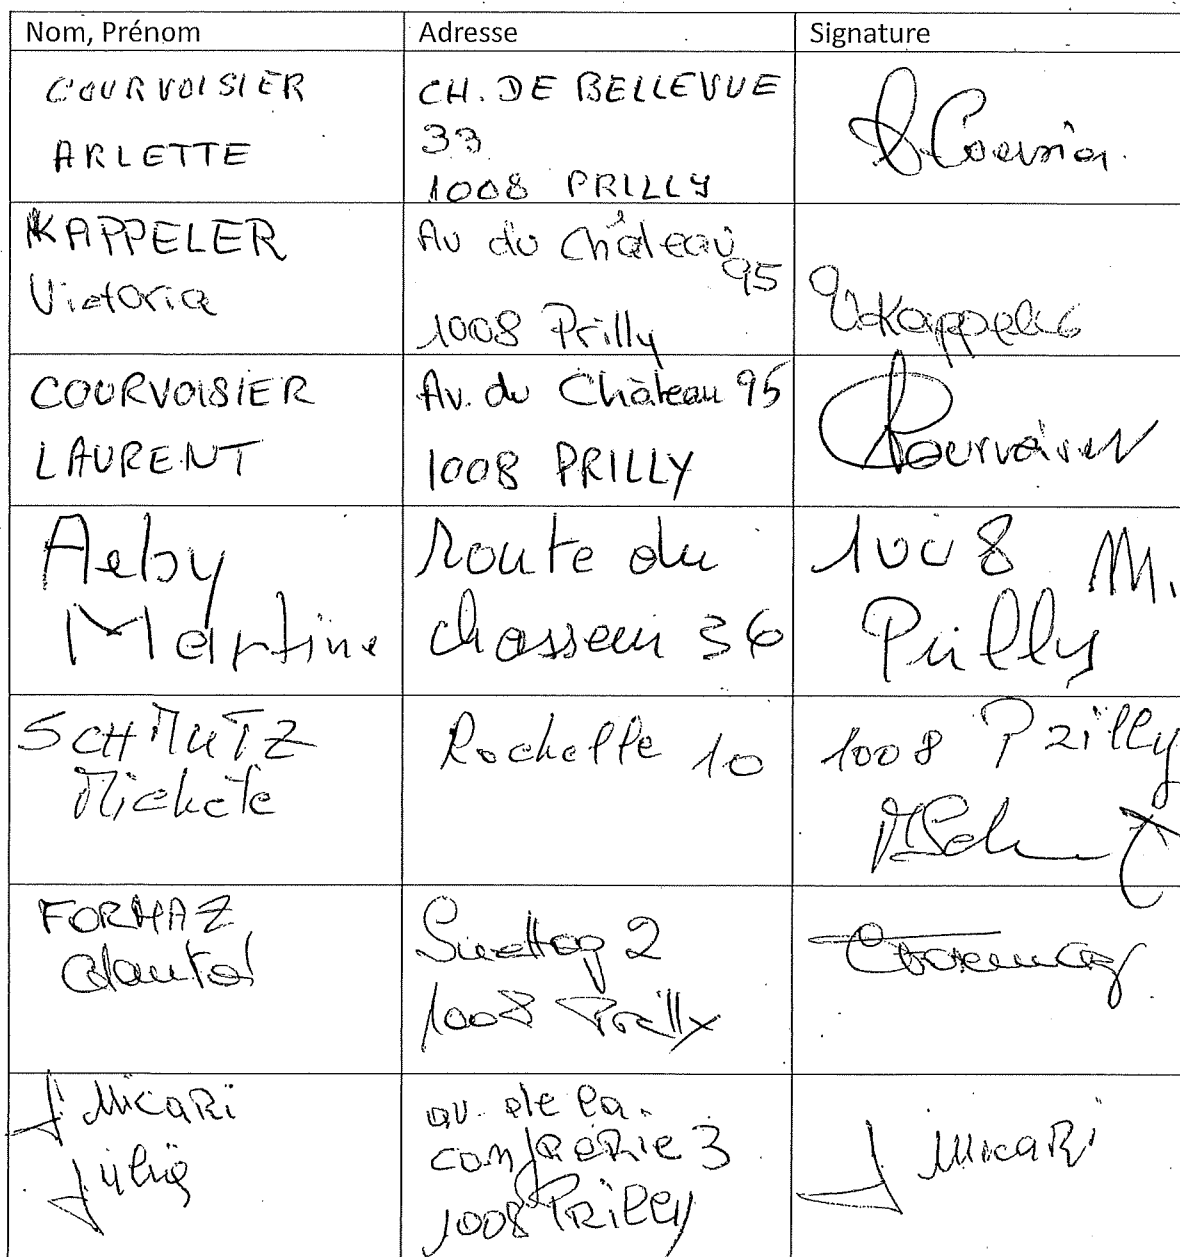 Nom, Prénom Adresse Signature
COURVOISIER
ARLETTE
CH. DE BELLEVUE
33
1008 PRILLY
KAPPELER
Victoria
Av du Château
95
1008 Prilly
V. Kappeler
COURVOISIER
LAURENT
Av. du Château 95
1008 PRILLY
Courvoisier
Aeby
Martine
Route du
chasseur 36
1008 M.
Prilly
SCHMUTZ
Michèle
Rochelle 10
1008 Prilly
FORMAZ
Chantal
2
1008 Prilly
J. Micari
Julia
av. de la
confrérie 3
1008 Prilly
J Micari